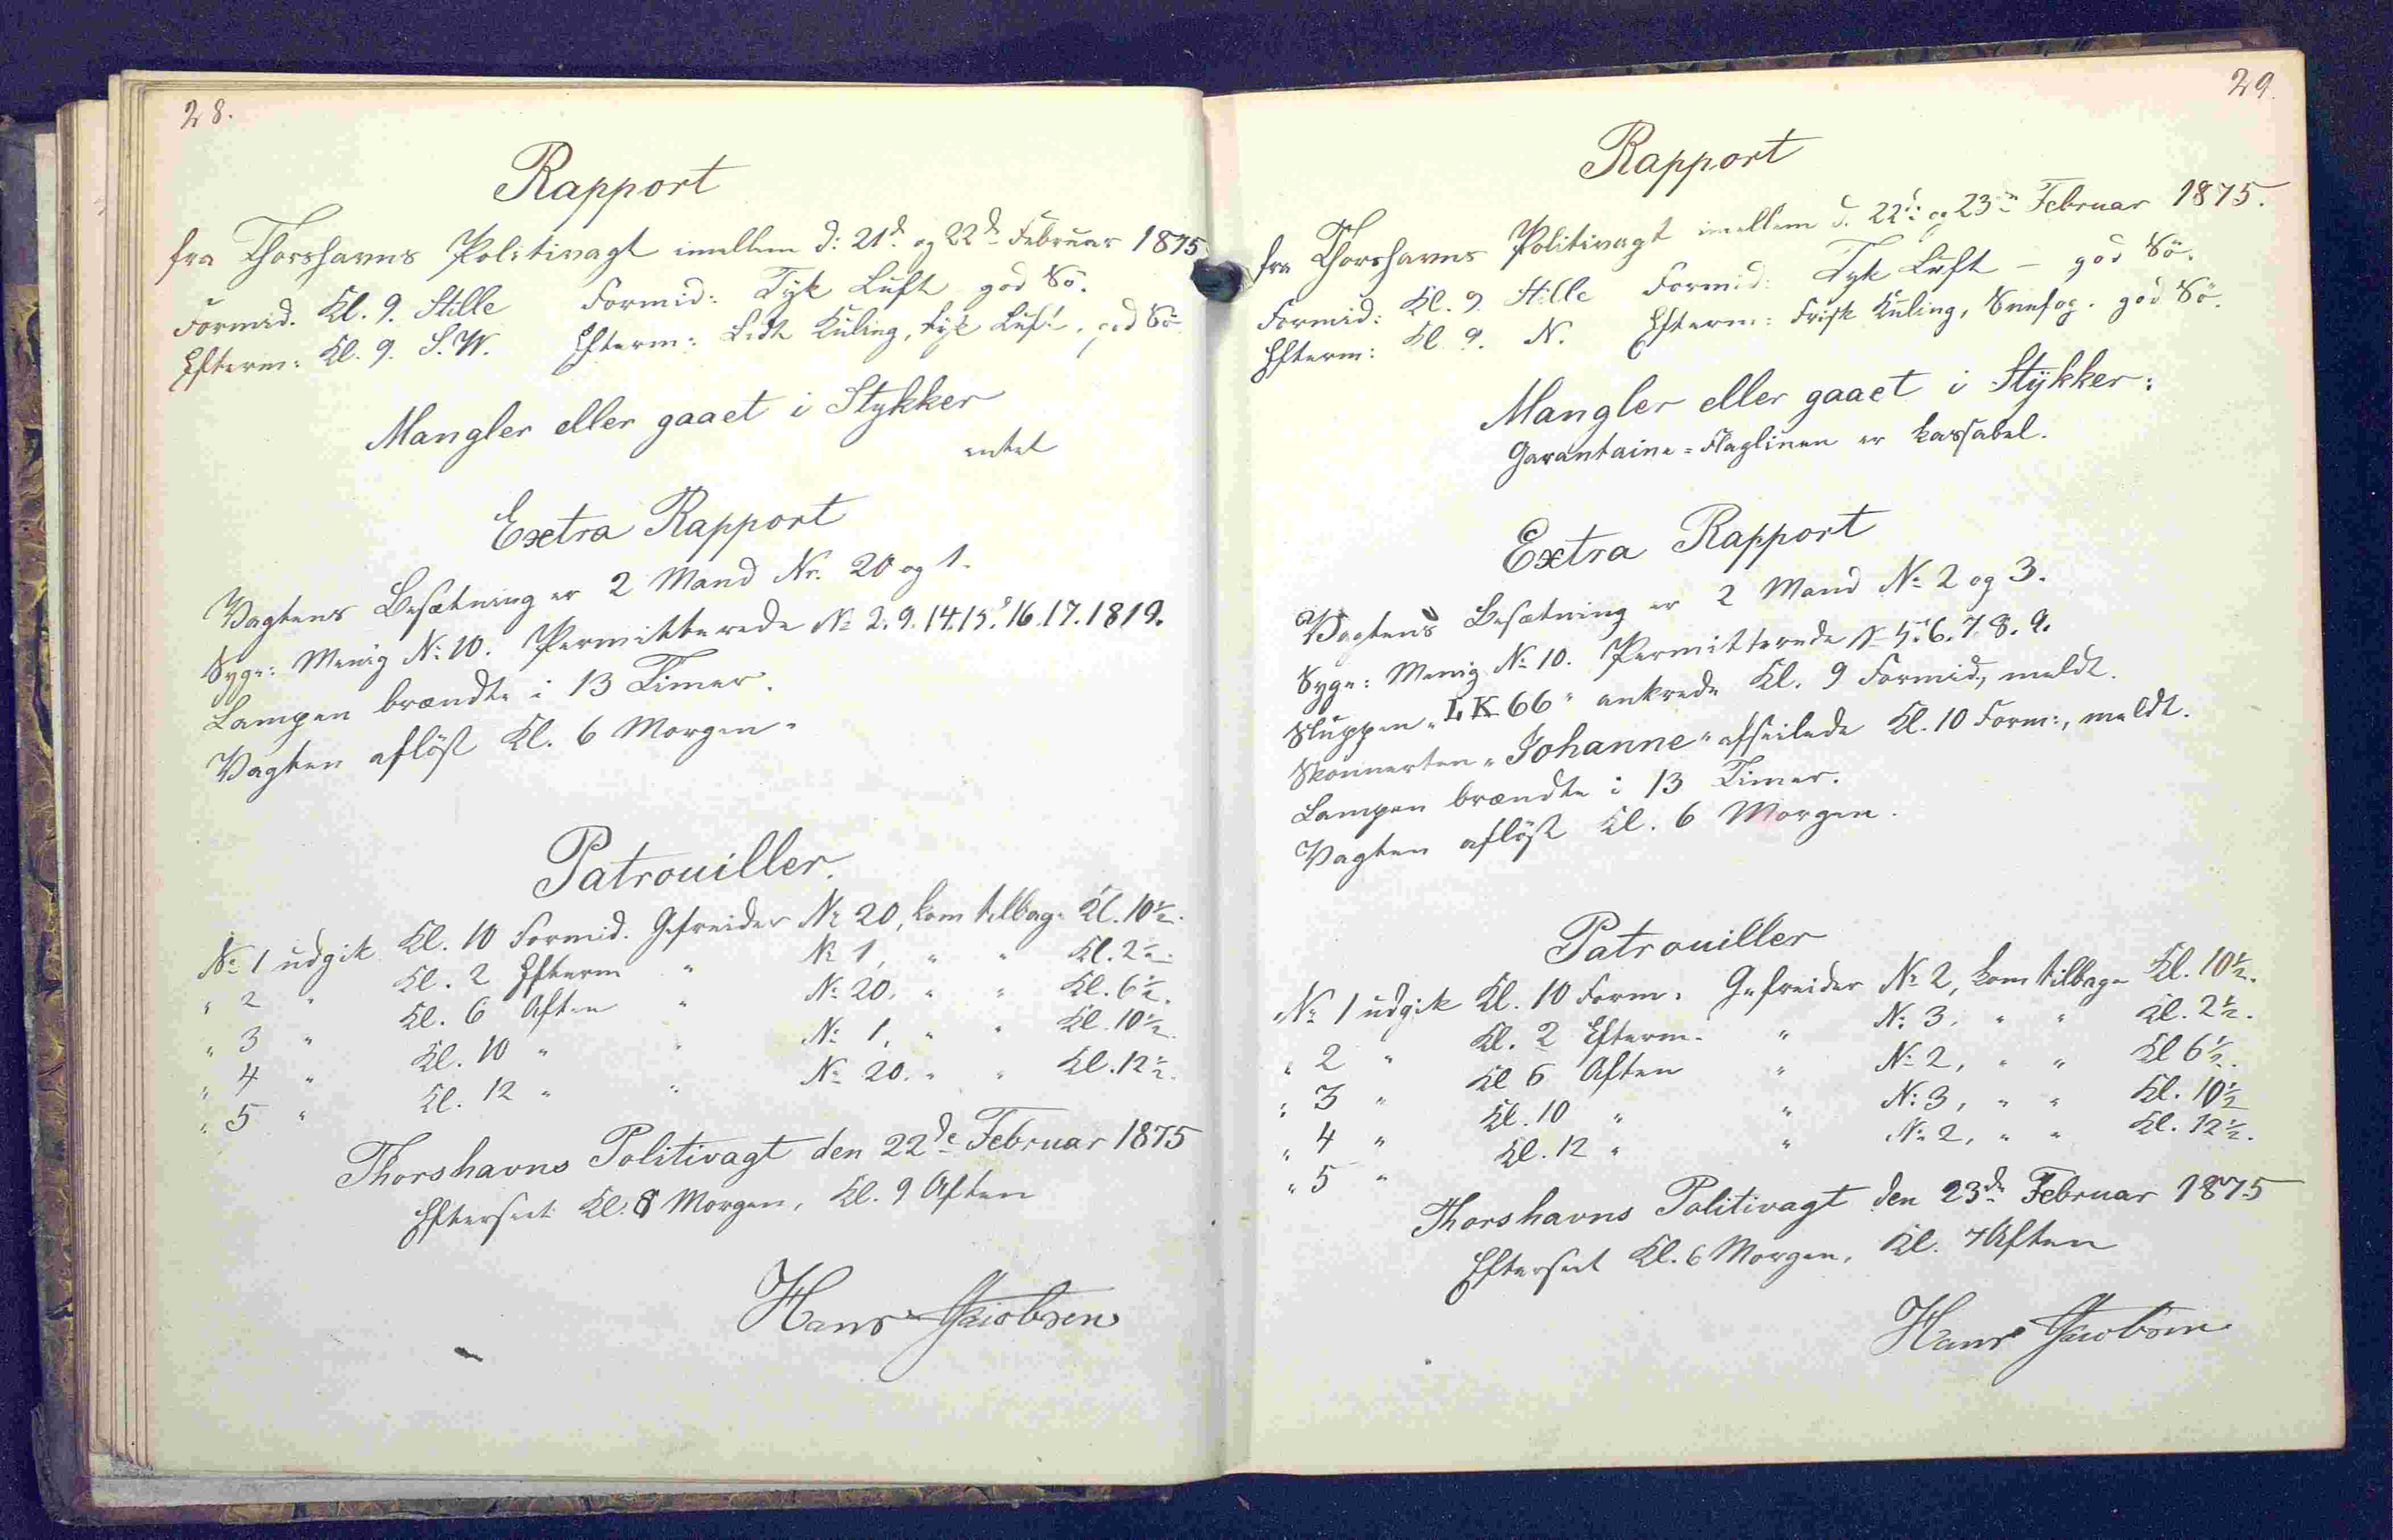 28.
Rapport
fra Thorshavns Politivagt imellem d: 21de og 22de Februar 1875
Formid. Kl. 9. Stille Formid: Tyk Luft god Sö.
Efterm: Kl. 9. S.W. Efterm: Lidt Kuling, tyk Luft, god Sö.
Mangler eller gaaet i Stykker
intet
Extra Rapport
Vagtens Besætning er 2 Mand Nr. 20 og 1.
Syge: Menig No 10. Permitterede No 2. 9. 14. 15. 16. 17. 18 19.
Lampen brændte i 13 Timer.
Vagten aflöst Kl. 6 Morgen.
Patrouiller.
No 1 udgik Kl. 10 Formid. Gefreider No 20, kom tilbage Kl. 10½.
" 2 " Kl. 2 Efterm " No 1, " " Kl. 2½.
" 3 " Kl. 6 Aften " No 20, " " Kl. 6½.
" 4 " Kl. 10 " " No 1, " " Kl. 10½.
" 5 " Kl. 12 " " No 20. " " Kl. 12½.
Thorshavns Politivagt den 22de Februar 1875
Efterseet Kl. 8 Morgen, Kl. 9 Aften
Hans Jacobsen
29.
Rapport
fra Thorshavns Politivagt imellem d. 22de og 23de Februar 1875.
Formid: Kl. 9. Stille Formid: Tyk Luft – god Sö.
Efterm: Kl. 9. N. Efterm: Frisk Kuling, Snefog. god Sö.
Mangler eller gaaet i Stykker:
Qarantaine=Flaglinen er kassabel.
Extra Rapport
Vagtens Besætning er 2 Mand No 2 og 3.
Syge: Menig No 10. Permitterede No 5. 6. 7. 8. 9.
Sluppen „LK 66" ankrede Kl. 9 Formid., meldt.
Skonnerten „Johanne" afseilede Kl. 10 Form:, meldt.
Lampen brændte i 13 Timer.
Vagten aflöst Kl. 6 Morgen.
Patrouiller
No 1 udgik Kl. 10 Form. Gefreider No 2, kom tilbage Kl. 10½.
" 2 " Kl. 2 Efterm. " No 3, " " Kl. 2½.
" 3 " Kl 6 Aften " No 2, " " Kl 6½.
" 4 " Kl. 10 " " No 3, " " Kl. 10½
" 5 " Kl. 12 " " No 2, " " Kl. 12½.
Thorshavns Politivagt den 23de Februar 1875
Efterseet Kl. 6 Morgen, Kl. 7 Aften
Hans Jacobsen